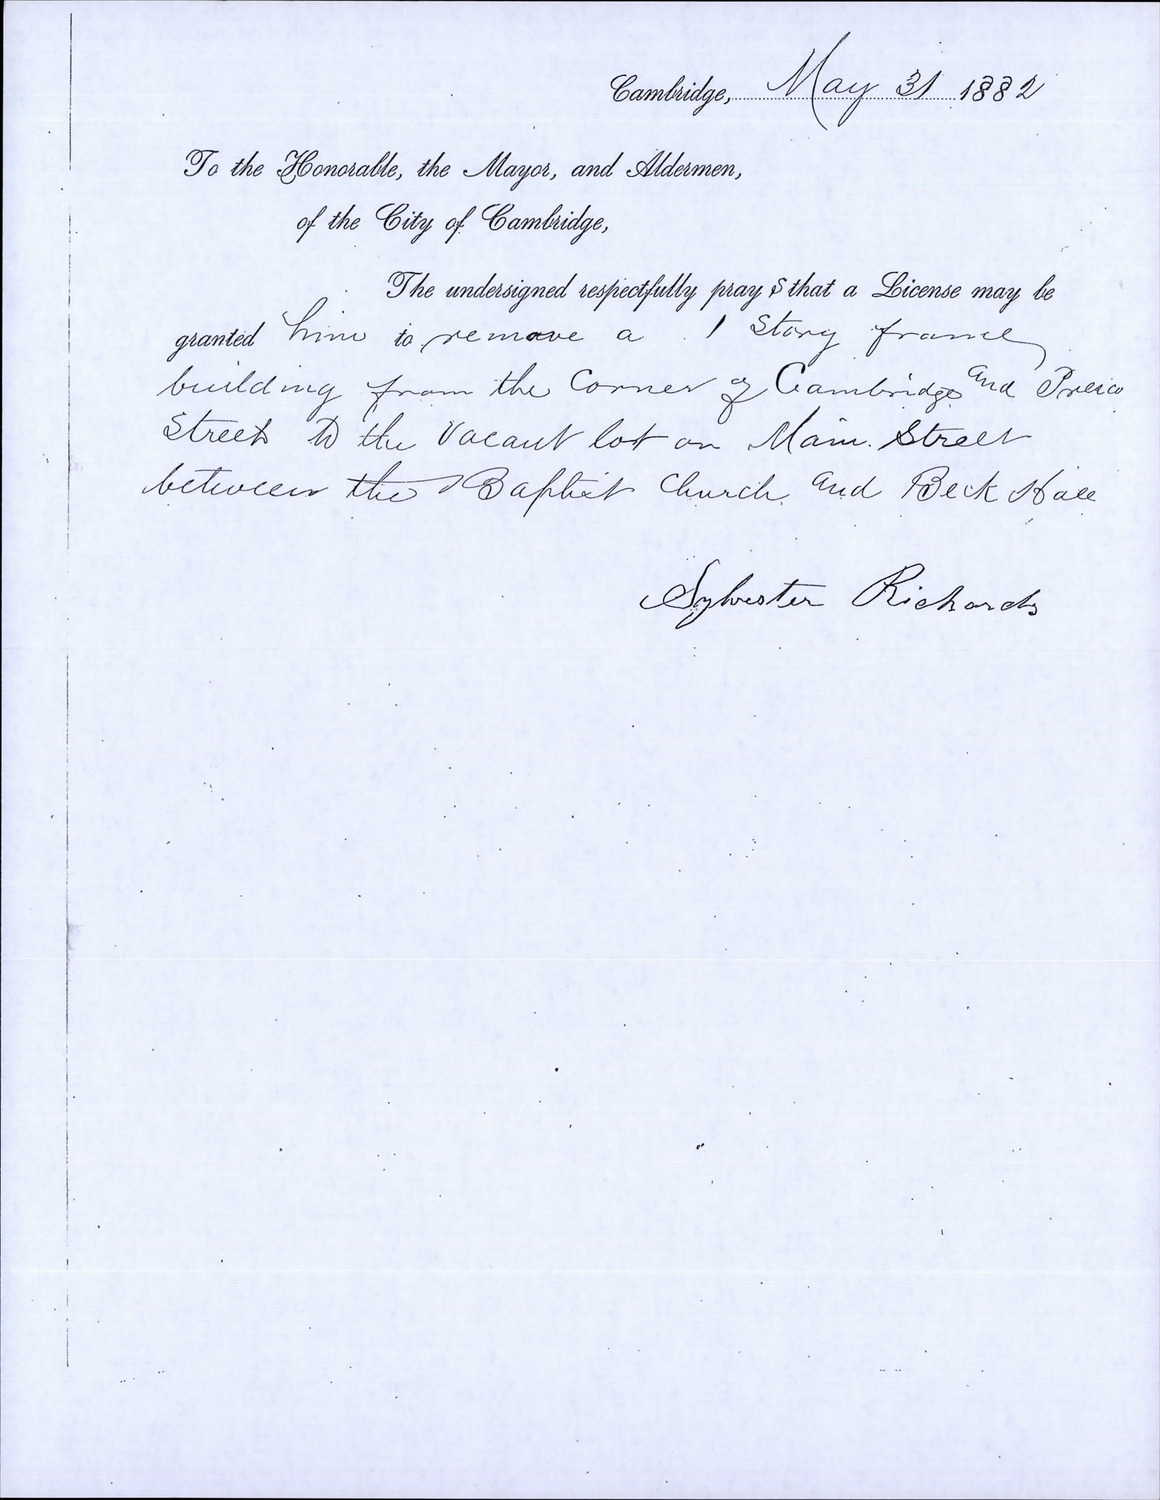 Cambridge, May 31 1882
To the Honorable, the Mayor, and Aldermen,
of the City of Cambridge,
The undersigned respectfully prays that a License may be
granted him to remove a 1 Story frame
building from the Corner of Cambridge and
Streets to the Vacant lot on Main Street
between the Baptist Church and Beck Hall
Sylvester Richards